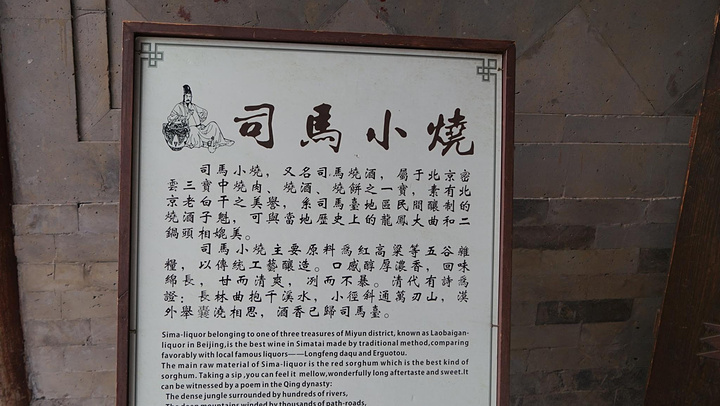 司馬小燒
司馬小燒，又名司馬燒酒，屬于北京密
雲三寶中燒肉、燒酒、燒餅之一寶，素有北
京老白干之美譽，系司馬臺地區民間釀制的
燒酒子魁，可與當地歷史上的龍鳳大曲和二
鍋頭相媲美。
司馬小燒主要原料為紅高粱等五谷雜
糧，以傳統工藝釀造。口感醇厚濃香，回味
綿長，甘而清爽，冽而不暴。清代有詩為
證：長林曲抱千溪水，小徑斜通萬刃山，漠
外舉澆相思，酒香已歸司馬臺。
Sima-liquor belonging to one of three treasures of Miyun district, known as Laobaigan-
liquor in Beijing,is the best wine in Simatai made by traditional method,comparing
favorably with local famous liquors——Longfeng daqu and Erguotou.
The main raw material of Sima-liquor is the red sorghum which is the best kind of
sorghum. Taking a sip ,you can feel it mellow,wonderfully long aftertaste and sweet.It
can be witnessed by a poem in the Qing dynasty:
The dense jungle surrounded by hundreds of rivers,
The deep mountains winded by thousands of path-roads,